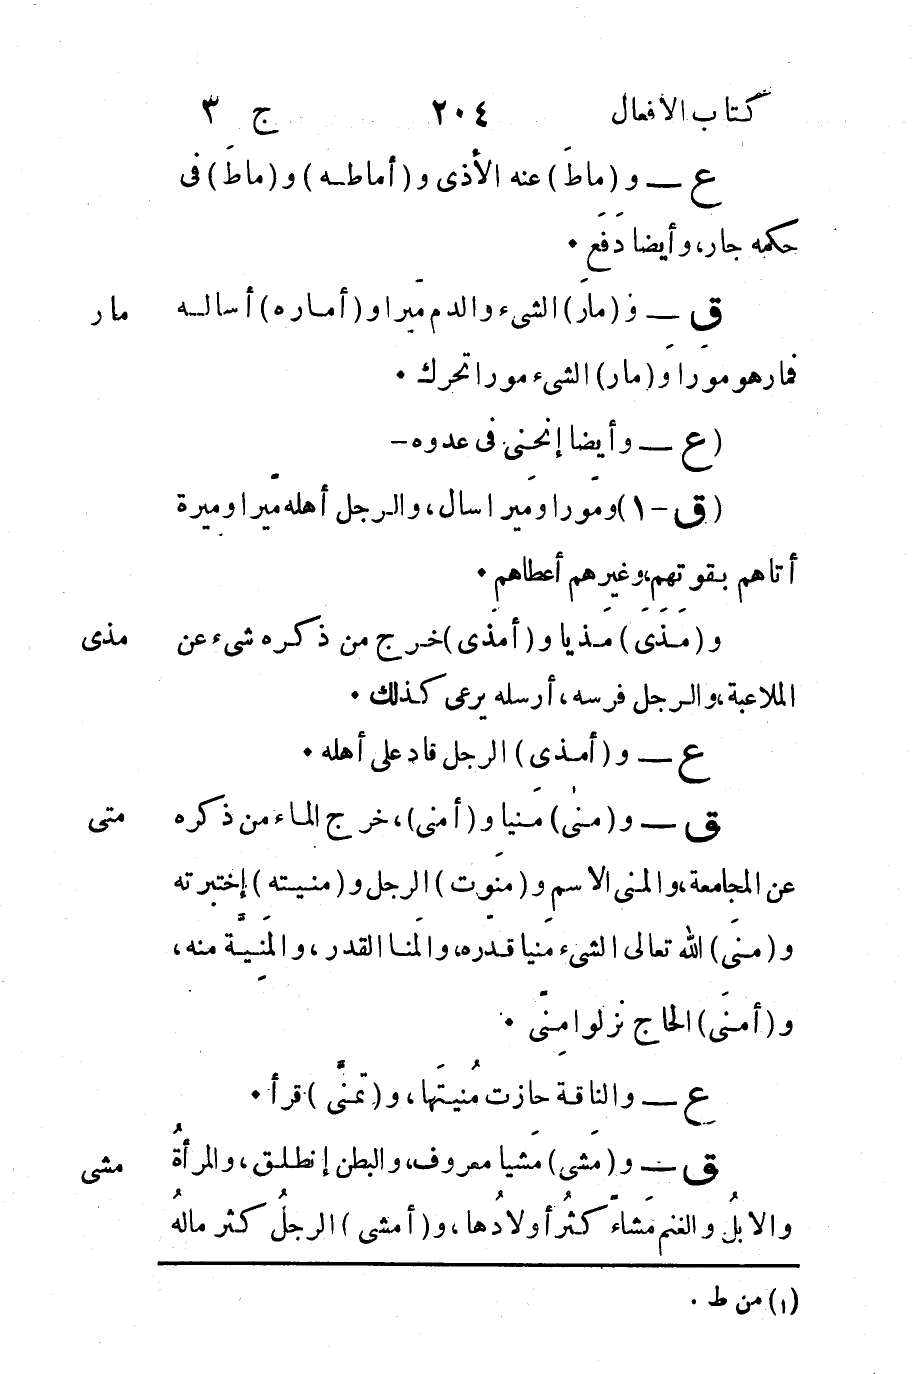 كتاب الافعال ٢٠٤ ج ٣
ع — و (ماطَ) عنه الأذى و (أماطه) و (ماطَ) فى
حكمه جار، وأيضا دَفَع ٠
ق — و (مارَ) الشىء والدم مَيرا و (أماره) أساله مار
فمارهو مَورا و (مار) الشىء مورا تحرك ٠
(ع — وأيضا إنحنى فى عدوه —
(ق - ١) ومَورا ومَيرا سال، والرجل أهله مَيرا وميرة
أتاهم بقوتهم، وغيرهم أعطاهم ٠
و (مَذَى) مَذيا و (أمذَى) خرج من ذكره شىء عن مذى
الملاعبة، والرجل فرسه، أرسله يرعى كذلك ٠
ع — و (أمذى) الرجل قاد على أهله ٠
ق — و (منى) مَنيا و (أمنى)، خرج الماء من ذكره متى
عن المجامعة، والمنى الاسم و (منَوت) الرجل و (منيته) إختبرته
و (منَى) الله تعالى الشىء مَنيا قدره، والمَنا القدر، والمَنِيَّة منه،
و (أمنَى) الحاج نزلوا مِنًى ٠
ع — والناقة حازت مُنيتَها، و (تمنَّى) قرأ ٠
ق — و (مشى) مَشيا معروف، والبطن إنطلق، والمرأةُ مشى
والابلُ والغنم مَشاءً كثُر أولادُها، و (أمشى) الرجلُ كثر مالهُ
(١) من ط ٠